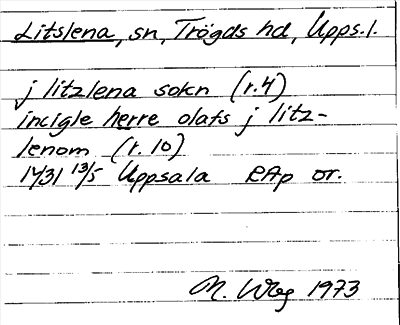 Litslena, sn, Trögds hd, Upps.l.
j litzlena sokn (r.4)
incigle herre olafs j litz-
lenom (r. 10)
1431 13/5 Uppsala RAp or.
M. Wbg 1973